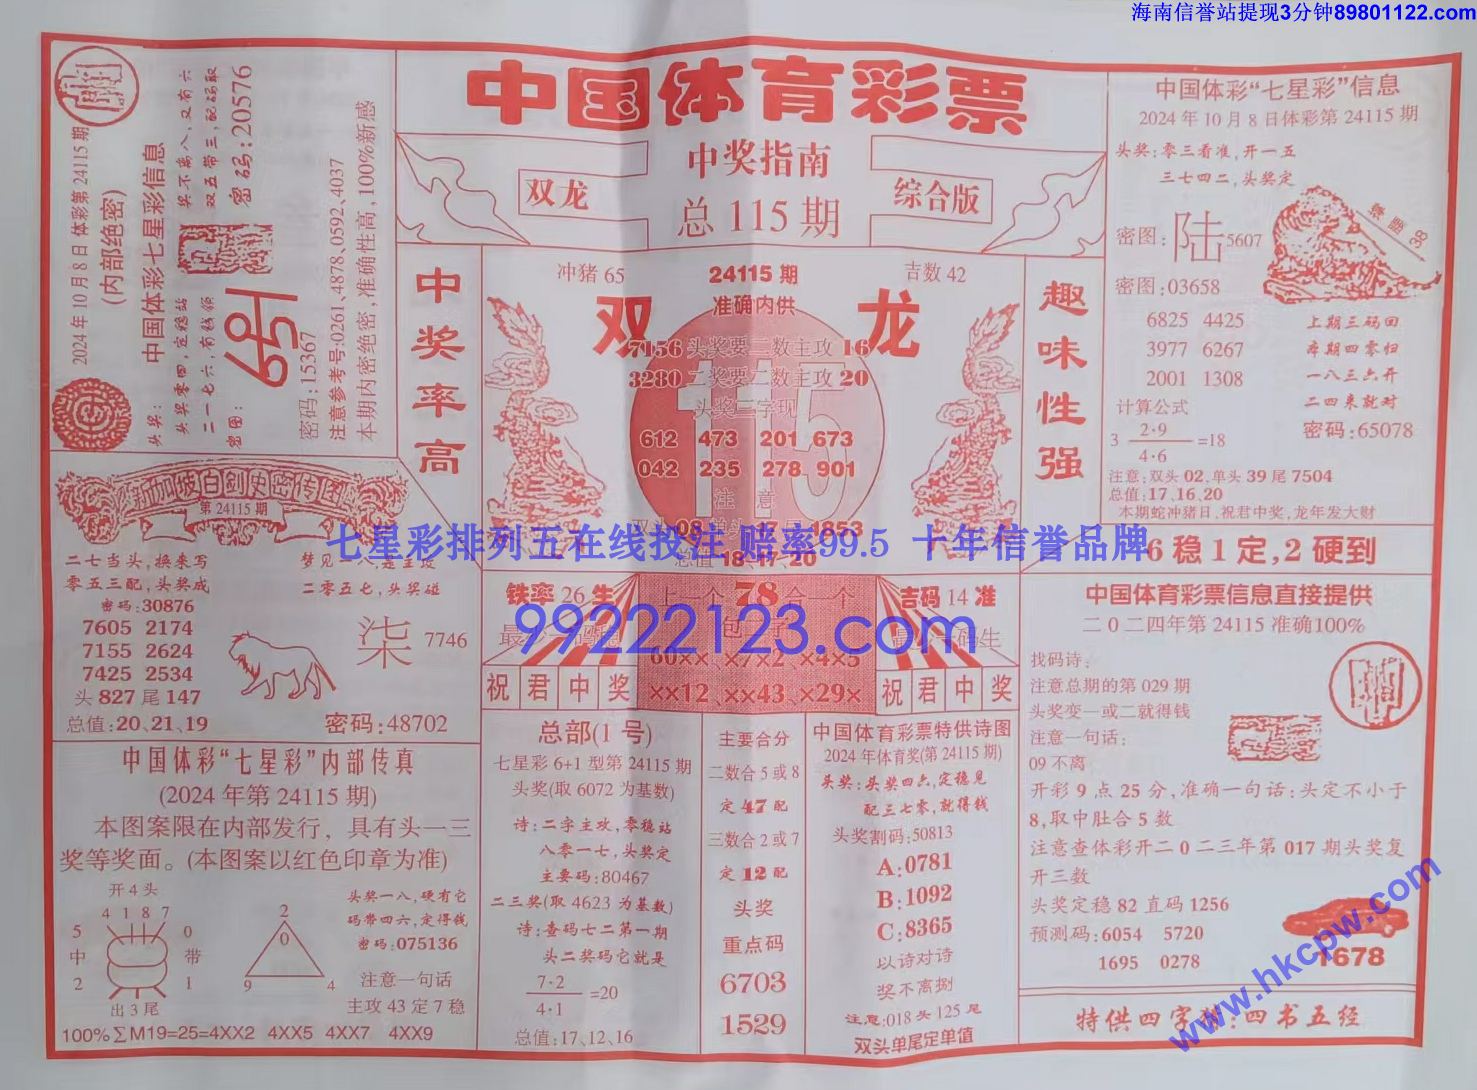 海南信誉站提现3分钟89801122.com
中国体育彩票
中奖指南
双龙
综合版
总 115 期
2024 年 10 月 8 日 体彩第 24115 期
(内部绝密)
中国体彩七星彩信息
头奖:
头奖零四,定稳站
奖不离八,又有六
二一七六,有钱领
双五带三,配码取
密图:
密码:20576
密码:15367
注意参考号:0261、4878、0592、4037
本期内密绝密,准确性高,100%新感
中奖率高
冲猪 65
24115 期
吉数 42
双
准确内供
龙
7156 头奖要二数主攻 16
3280 二奖要二数主攻 20
头奖三字现
612 473 201 673
042 235 278 901
注 意
双头 08 单头 17 1853
总值 18、17、20
115
趣味性强
中国体彩“七星彩”信息
2024 年 10 月 8 日体彩第 24115 期
头奖:零三看准,开一五
三七四二,头奖定
密图: 陆 5607
38
密图:03658
6825 4425
3977 6267
2001 1308
上期三码回
本期四零归
一八三六开
二四来就对
计算公式
3 2·9
4·6 =18
密码:65078
注意:双头 02、单头 39 尾 7504
总值:17、16、20
本期蛇冲猪日、祝君中奖,龙年发大财
新加坡白剑史密传图
第 24115 期
二七当头,换来写
零五三配,头奖成
密码:30876
二零五七,头奖碰
7605 2174
7155 2624
7425 2534
柒 7746
头 827 尾 147
总值:20、21、19
密码:48702
七星彩排列五在线投注 赔率99.5 十年信誉品牌
99222123.com
铁率 26 生
上一个 78 合一个
吉码 14 准
60××、×7×2、×4×5
××12、××43、×29×
祝君中奖
祝君中奖
6 稳 1 定,2 硬到
中国体育彩票信息直接提供
二 0 二四年第 24115 准确100%
找码诗:
注意总期的第 029 期
头奖变一或二就得钱
注意一句话:
09 不离
开彩 9 点 25 分,准确一句话:头定不小于
8,取中肚合 5 数
注意查体彩开二 0 二三年第 017 期头奖复
开三数
头奖定稳 82 直码 1256
预测码:6054 5720
1695 0278
1678
中国体彩“七星彩”内部传真
(2024 年第 24115 期)
本图案限在内部发行，具有头一三
奖等奖面。(本图案以红色印章为准)
开 4 头
4 1 8 7
5 0
中 带
2 1
出 3 尾
2
0
9 4
头奖一八,硬有它
码带四六,定得钱
密码:075136
注意一句话
主攻 43 定 7 稳
100%∑M19=25=4XX2 4XX5 4XX7 4XX9
总部(1 号)
七星彩 6+1 型第 24115 期
头奖(取 6072 为基数)
诗:二字主攻,零稳站
八零一七,头奖定
主要码:80467
二三奖(取 4623 为基数)
诗:查码七二第一期
头二奖码它就是
7·2
4·1 =20
总值:17、12、16
主要合分
二数合 5 或 8
定 47 配
三数合 2 或 7
定 12 配
头奖
重点码
6703
1529
中国体育彩票特供诗图
2024 年体育奖(第 24115 期)
头奖:头奖四六,定稳见
配三七零,就得钱
头奖割码:50813
A:0781
B:1092
C:8365
以诗对诗
奖不离捌
注意:018 头 125 尾
双头单尾定单值
www.hkcpw.com